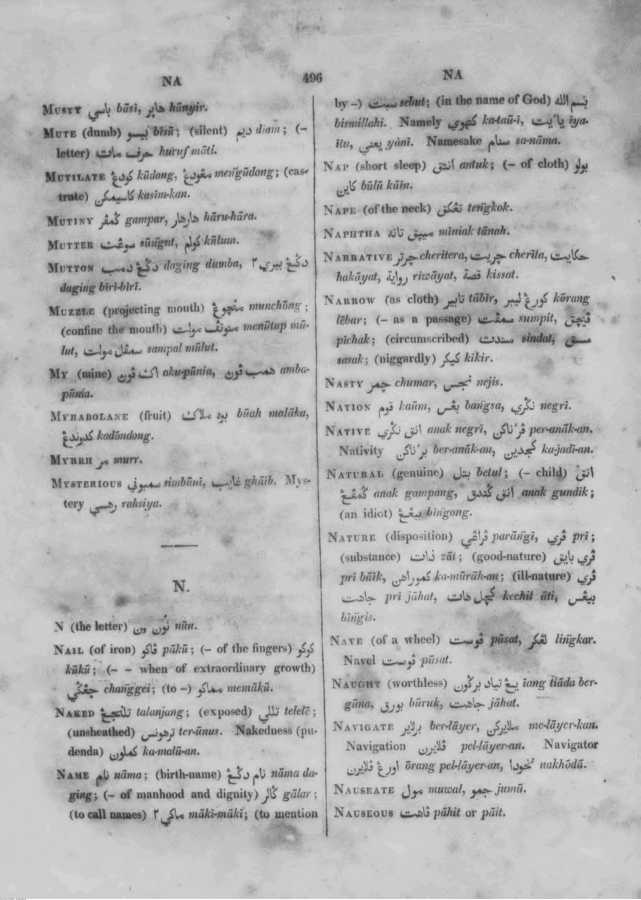 NA
496
NA
MUSTY باسي bāsi, هاپر hāṅyir.
MUTE (dumb) بيسو bīsū; (silent) ديم diam; (–
letter) حرف مات huruf māti.
MUTILATE كودڠ kūdong, مڠودڠ meṅgūdong; (cas-
trate) كاسيمكن kasim-kan.
MUTINY گمڤر gampar, هارهار hāru-hāra.
MUTTER سوڠت sūṅgut, كولم kūlum.
MUTTON داگڠ دمب daging dumba, داگڠ بيري ٢
daging bīri-bīri.
MUZZLE (projecting mouth) منچوڠ munchōng;
(confine the mouth) منوتف مولت menūtup mū-
lut, سمڤل مولت sampal mūlut.
MY (mine) اكت ڤون aku-pūnia, همب ڤون amba-
pūnia.
MYRABOLANE (fruit) بوه ملاك būah malāka,
كدوندڠ kadōndong.
MYRRH مر murr.
MYSTERIOUS سمبوني simbūni, غايب ghāib. Mys-
tery رهسي rahsiya.
N.
N (the letter) نون nūn.
NAIL (of iron) ڤاكو pākū; (– of the fingers) كوكو
kūkū; (– – when of extraordinary growth)
چڠگي changgei; (to –) مماكو memākū.
NAKED تلنجڠ talanjang; (exposed) تللي telelē;
(unsheathed) ترهونس ter-ūnus. Nakedness (pu-
denda) كملون ka-malū-an.
NAME نام nāma; (birth-name) نام داگڠ nāma da-
ging; (– of manhood and dignity) گالر gālar;
(to call names) ماكي ٢ māki-māki; (to mention
by –) سبت sebut; (in the name of God) بسم الله
bismillahi. Namely كتهوي ka-taū-ī, يا ايت iya-
ītu, يعني yānī. Namesake سنام sa-nāma.
NAP (short sleep) انتق antuk; (– of cloth) بولو
كاين būlū kāin.
NAPE (of the neck) تڠكق teṅgkok.
NAPHTHA ميپق تانه miniak tānah.
NARRATIVE چرتر cheritera, چريت cherīta, حكايت
hakāyat, رواية riwāyat, قصة kissat.
NARROW (as cloth) تابير tābir, كورڠ ليبر kūrang
lēbar; (– as a passage) سمڤت sumpit, ڤيچق
pīchak; (circumscribed) سندت sindat, سسق
sasak; (niggardly) كيكر kikir.
NASTY چمر chumar, نجس nejis.
NATION قوم kaūm, بڠس baṅgsa, نگري negrī.
NATIVE انق نگري anak negrī, ڤرناكن per-anāk-an.
Nativity برناكن ber-anāk-an, كجدين ka-jadī-an.
NATURAL (genuine) بتل betul; (– child) انق
گمڤڠ anak gampang, انق گندق anak gundik;
(an idiot) بيڠڠ bīṅgong.
NATURE (disposition) ڤراڠي parāṅgī, ڤري prī;
(substance) ذات zāt; (good-nature) ڤري بايق
prī bāik, كموراهن ka-mūrāh-an; (ill-nature) ڤري
جاهت prī jāhat, كچل هات kechil āti, بيڠس
bīṅgis.
NAVE (of a wheel) ڤوست pūsat, لڠكر liṅgkar.
Navel ڤوست pūsat.
NAUGHT (worthless) يڠ تياد برگون īang tiāda ber-
gūna, بورق būruk, جاهت jāhat.
NAVIGATE برلاير ber-lāyer, ملايركن me-lāyer-kan.
Navigation ڤلايرن pel-lāyer-an. Navigator
اورڠ ڤلايرن ōrang pel-lāyer-an, نخودا nakhōdā.
NAUSEATE مول muwal, جمو jumū.
NAUSEOUS ڤاهت pāhit or pāit.